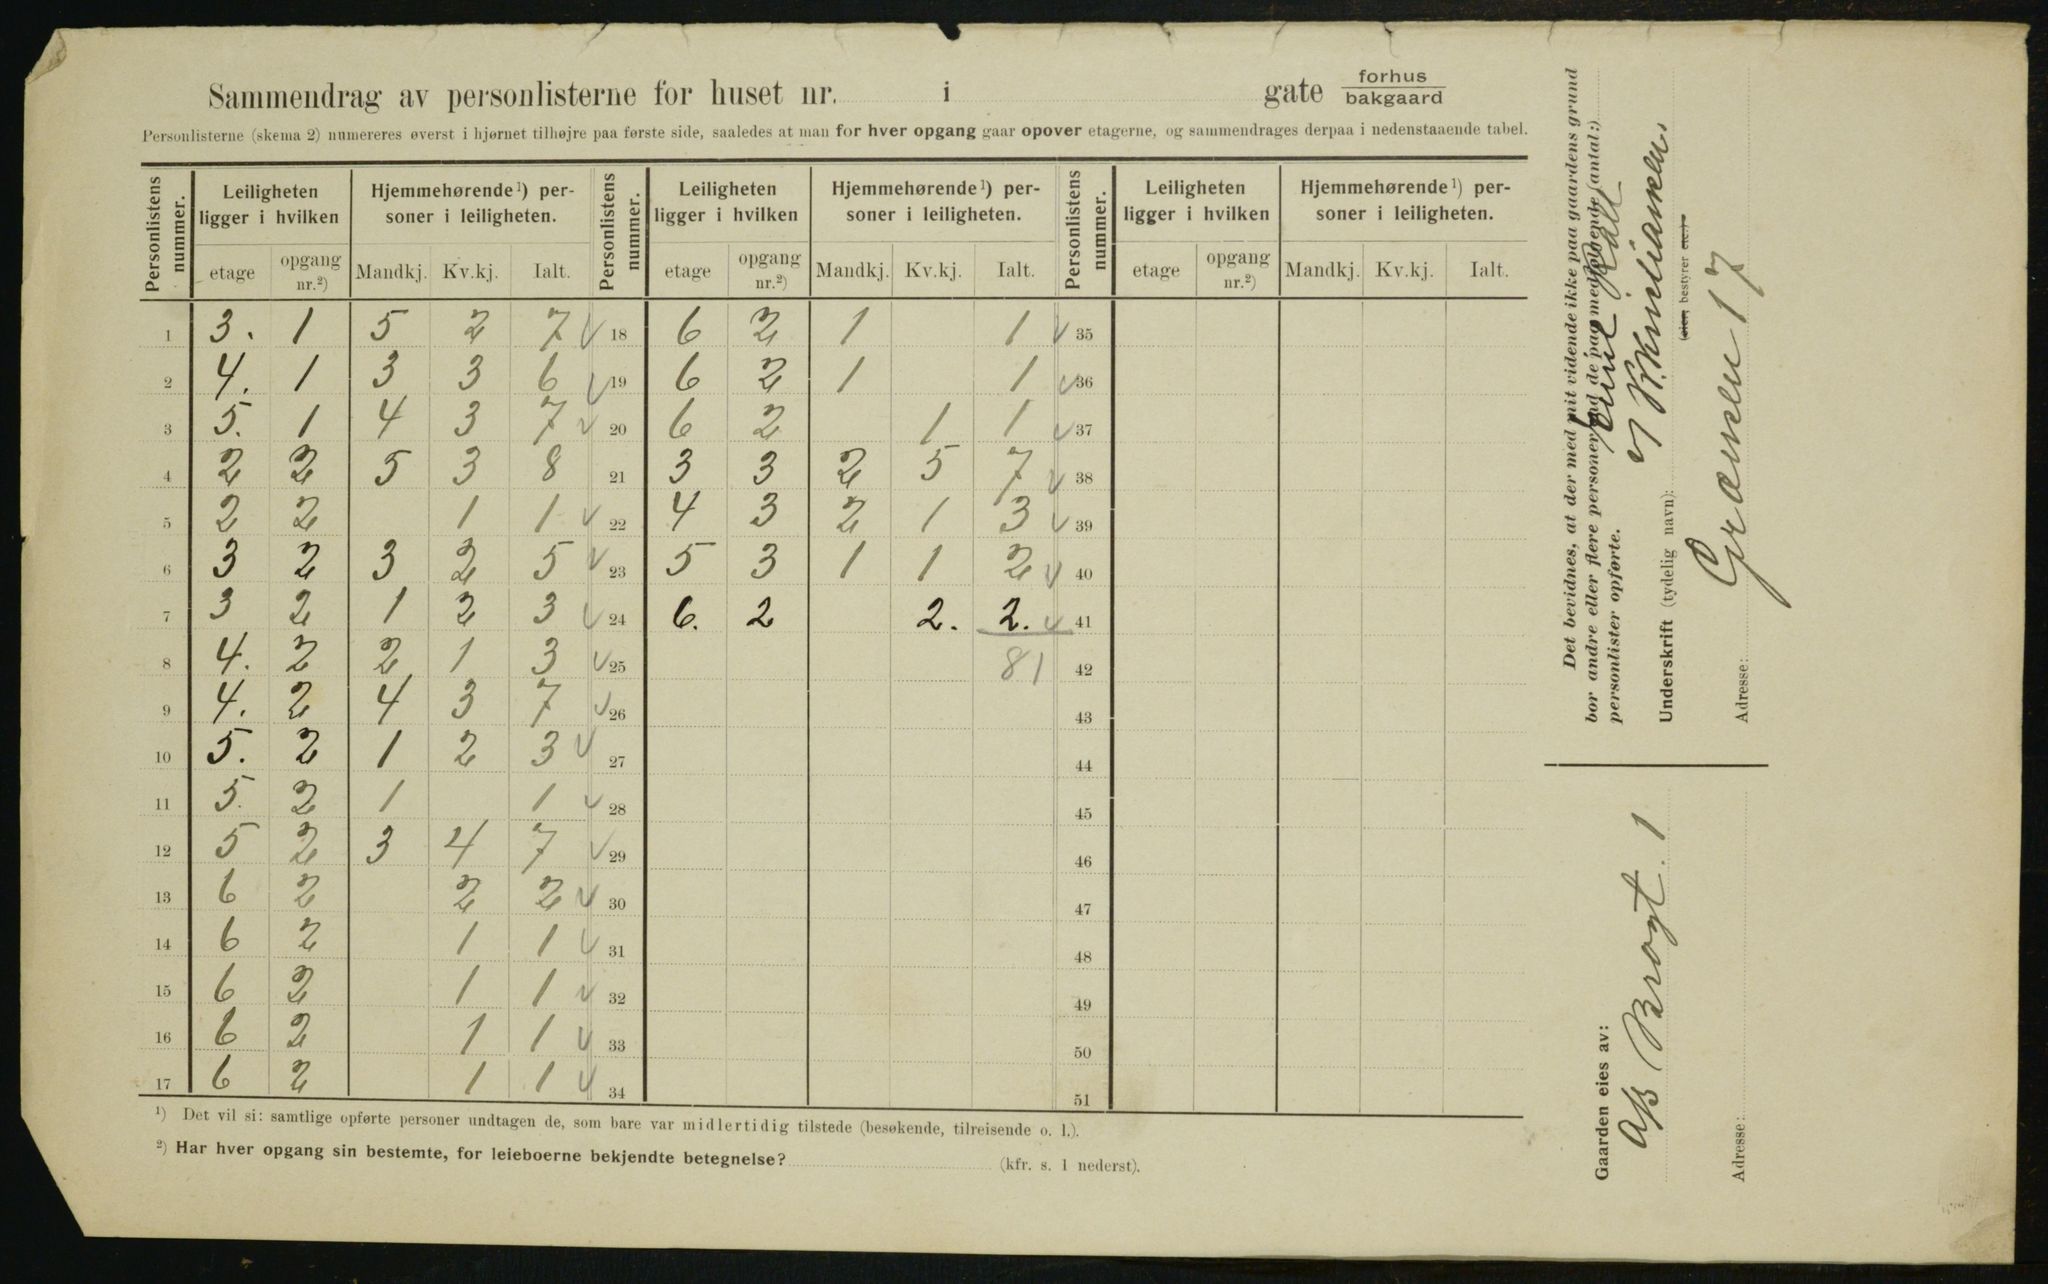 Sammendrag av personlisterne for huset nr. i gate forhus bakgaard
Personlisterne (skema 2) numereres øverst i hjørnet tilhøjre paa første side, saaledes at man for hver opgang gaar opover etagerne, og sammendrages derpaa i nedenstaaende tabel.
Personlistens nummer. Leiligheten ligger i hvilken Hjemmehørende¹) personer i leiligheten. Personlistens nummer. Leiligheten ligger i hvilken Hjemmehørende¹) personer i leiligheten. Personlistens nummer. Leiligheten ligger i hvilken Hjemmehørende¹) personer i leiligheten.
etage opgang nr.²) Mandkj. Kv.kj. Ialt. etage opgang nr.²) Mandkj. Kv.kj. Ialt. etage opgang nr.²) Mandkj. Kv.kj. Ialt.
1 3. 1 5 2 7 18 6 2 1 1 35
2 4. 1 3 3 6 19 6 2 1 1 36
3 5. 1 4 3 7 20 6 2 1 1 37
4 2 2 5 3 8 21 3 3 2 5 7 38
5 2 2 1 1 22 4 3 2 1 3 39
6 3 2 3 2 5 23 5 3 1 1 2 40
7 3 2 1 2 3 24 6. 2 2. 2. 41
8 4. 2 2 1 3 25 81 42
9 4. 2 4 3 7 26 43
10 5. 2 1 2 3 27 44
11 5. 2 1 1 28 45
12 5 2 3 4 7 29 46
13 6 2 2 2 30 47
14 6 2 1 1 31 48
15 6 2 1 1 32 49
16 6 2 1 1 33 50
17 6 2 1 1 34 51
¹) Det vil si: samtlige opførte personer undtagen de, som bare var midlertidig tilstede (besøkende, tilreisende o. l.).
²) Har hver opgang sin bestemte, for leieboerne bekjendte betegnelse? (kfr. s. 1 nederst).
Det bevidnes, at der med mit vidende ikke paa gaardens grund
bor andre eller flere personer end de paa medfølgende (antal:)
personlister opførte.
Underskrift (tydelig navn):
(eier, bestyrer etc.)
Adresse: Grænsen 17
Gaarden eies av: A/S Brogt. 1
Adresse: